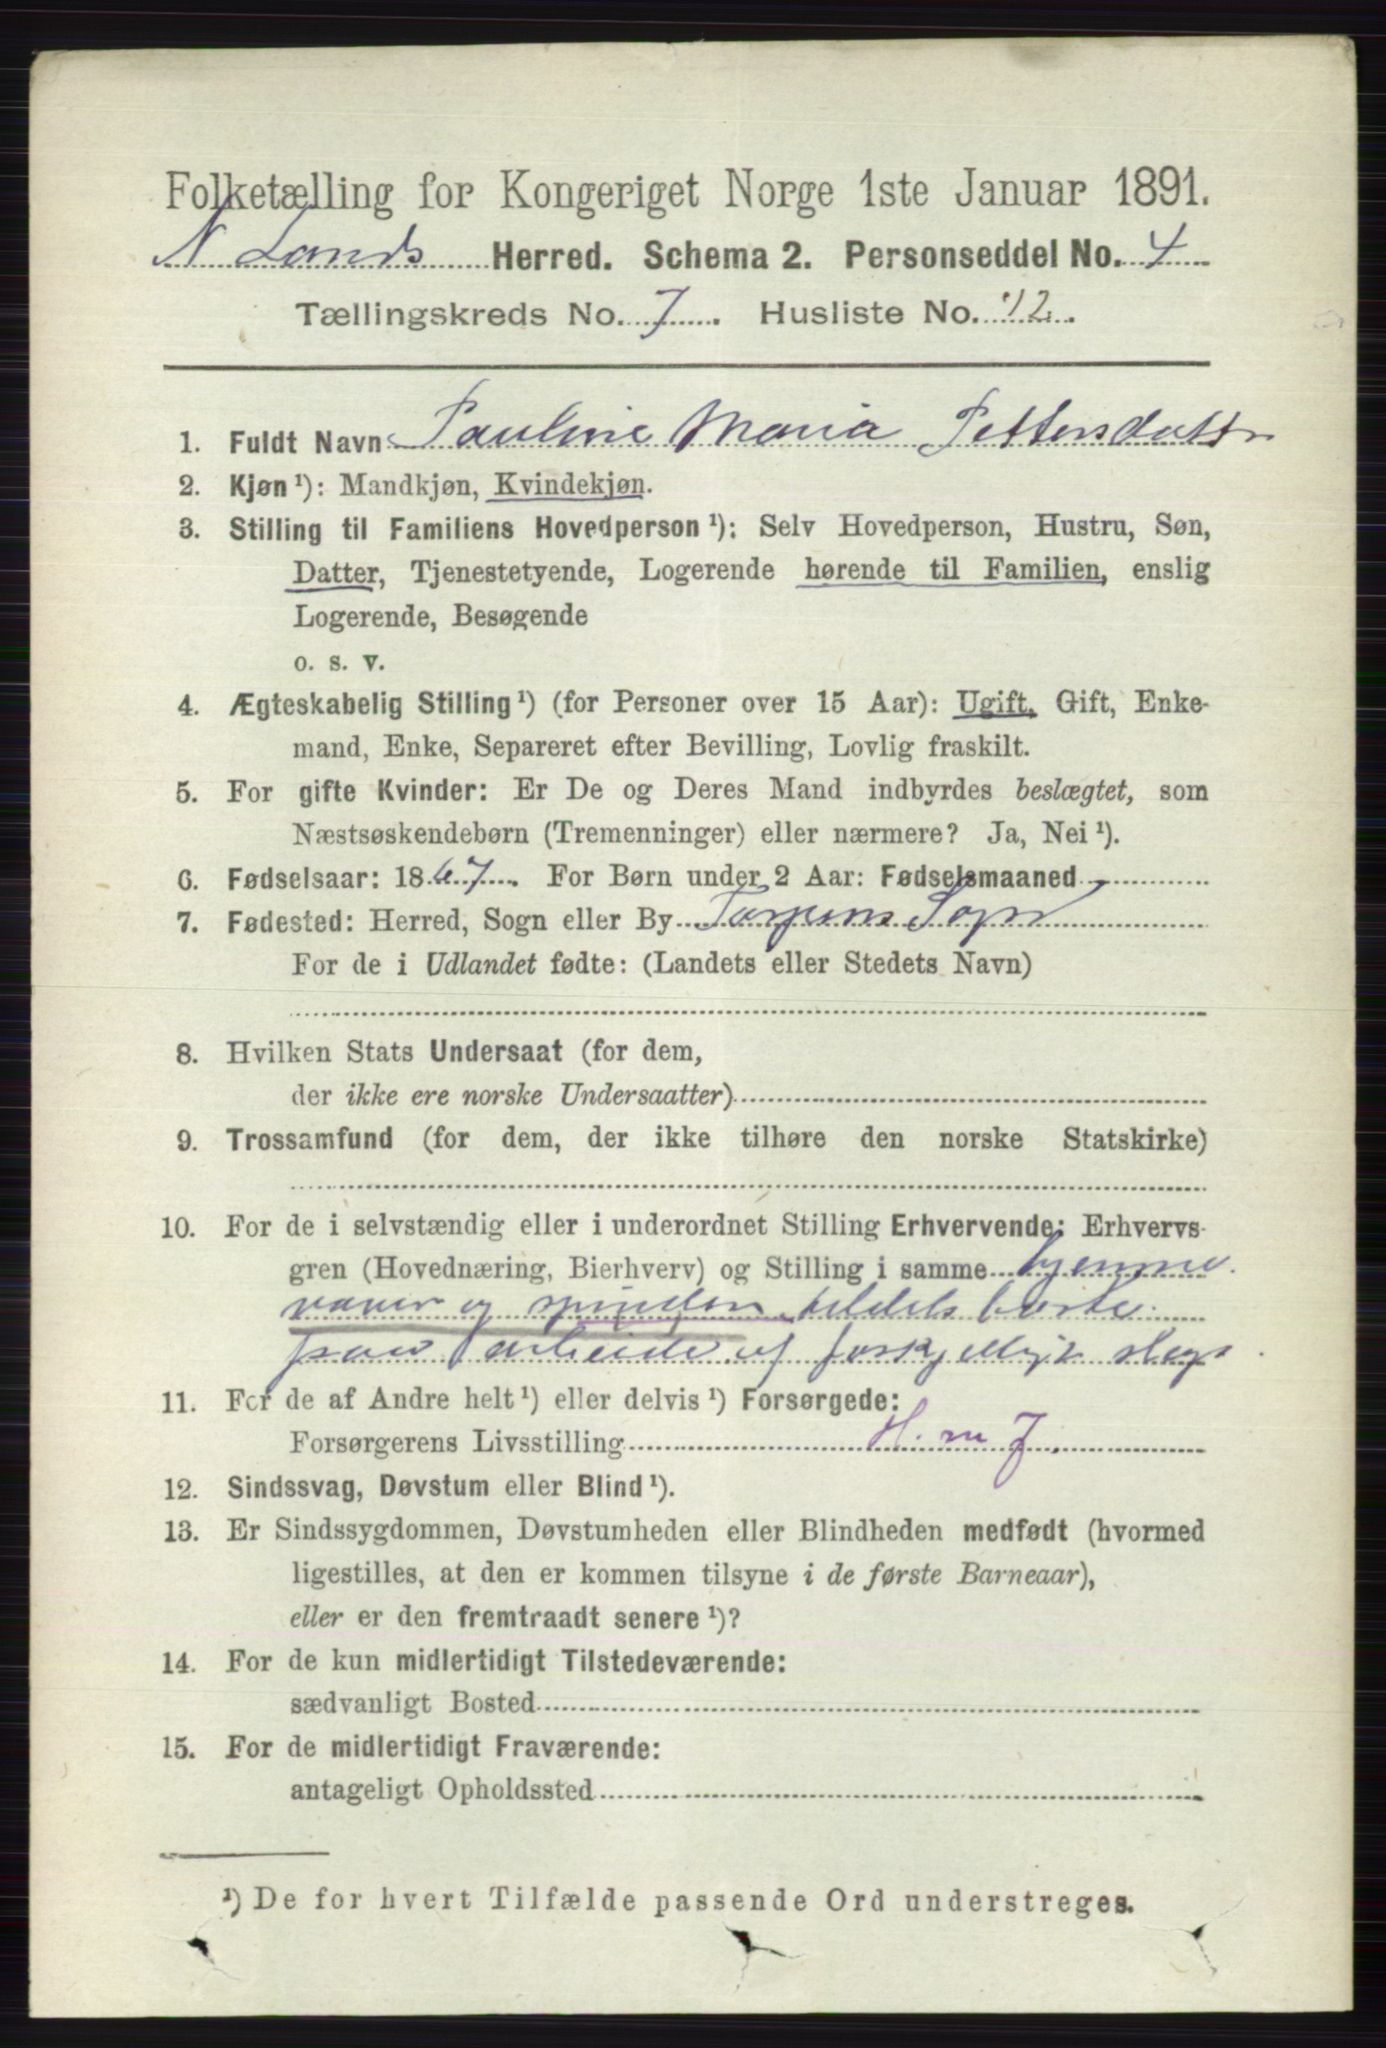 Folketælling for Kongeriget Norge 1ste Januar 1891.
N Lands Herred. Schema 2. Personseddel No. 4
Tællingskreds No. 7. Husliste No. 12.
1. Fuldt Navn Pauline Maria Pettersdatter
2. Kjøn ¹): Mandkjøn, Kvindekjøn.
3. Stilling til Familiens Hovedperson ¹): Selv Hovedperson, Hustru, Søn,
Datter, Tjenestetyende, Logerende hørende til Familien, enslig
Logerende, Besøgende
o. s. v.
4. Ægteskabelig Stilling ¹) (for Personer over 15 Aar): Ugift, Gift, Enke-
mand, Enke, Separeret efter Bevilling, Lovlig fraskilt.
5. For gifte Kvinder: Er De og Deres Mand indbyrdes beslægtet, som
Næstsøskendebørn (Tremenninger) eller nærmere? Ja, Nei ¹).
6. Fødselsaar: 1867. For Børn under 2 Aar: Fødselsmaaned
7. Fødested: Herred, Sogn eller By Torpens Sogn
For de i Udlandet fødte: (Landets eller Stedets Navn)
8. Hvilken Stats Undersaat (for dem,
der ikke ere norske Undersaatter)
9. Trossamfund (for dem, der ikke tilhøre den norske Statskirke)
10. For de i selvstændig eller i underordnet Stilling Erhvervende: Erhvervs-
gren (Hovednæring, Bierhverv) og Stilling i samme hjemme.
væver og spinder, tildels borte
paa arbeide af forskjelligt slags.
11. For de af Andre helt ¹) eller delvis ¹) Forsørgede:
Forsørgerens Livsstilling H. m J.
12. Sindssvag, Døvstum eller Blind ¹).
13. Er Sindssygdommen, Døvstumheden eller Blindheden medfødt (hvormed
ligestilles, at den er kommen tilsyne i de første Barneaar),
eller er den fremtraadt senere ¹)?
14. For de kun midlertidigt Tilstedeværende:
sædvanligt Bosted
15. For de midlertidigt Fraværende:
antageligt Opholdssted
¹) De for hvert Tilfælde passende Ord understreges.